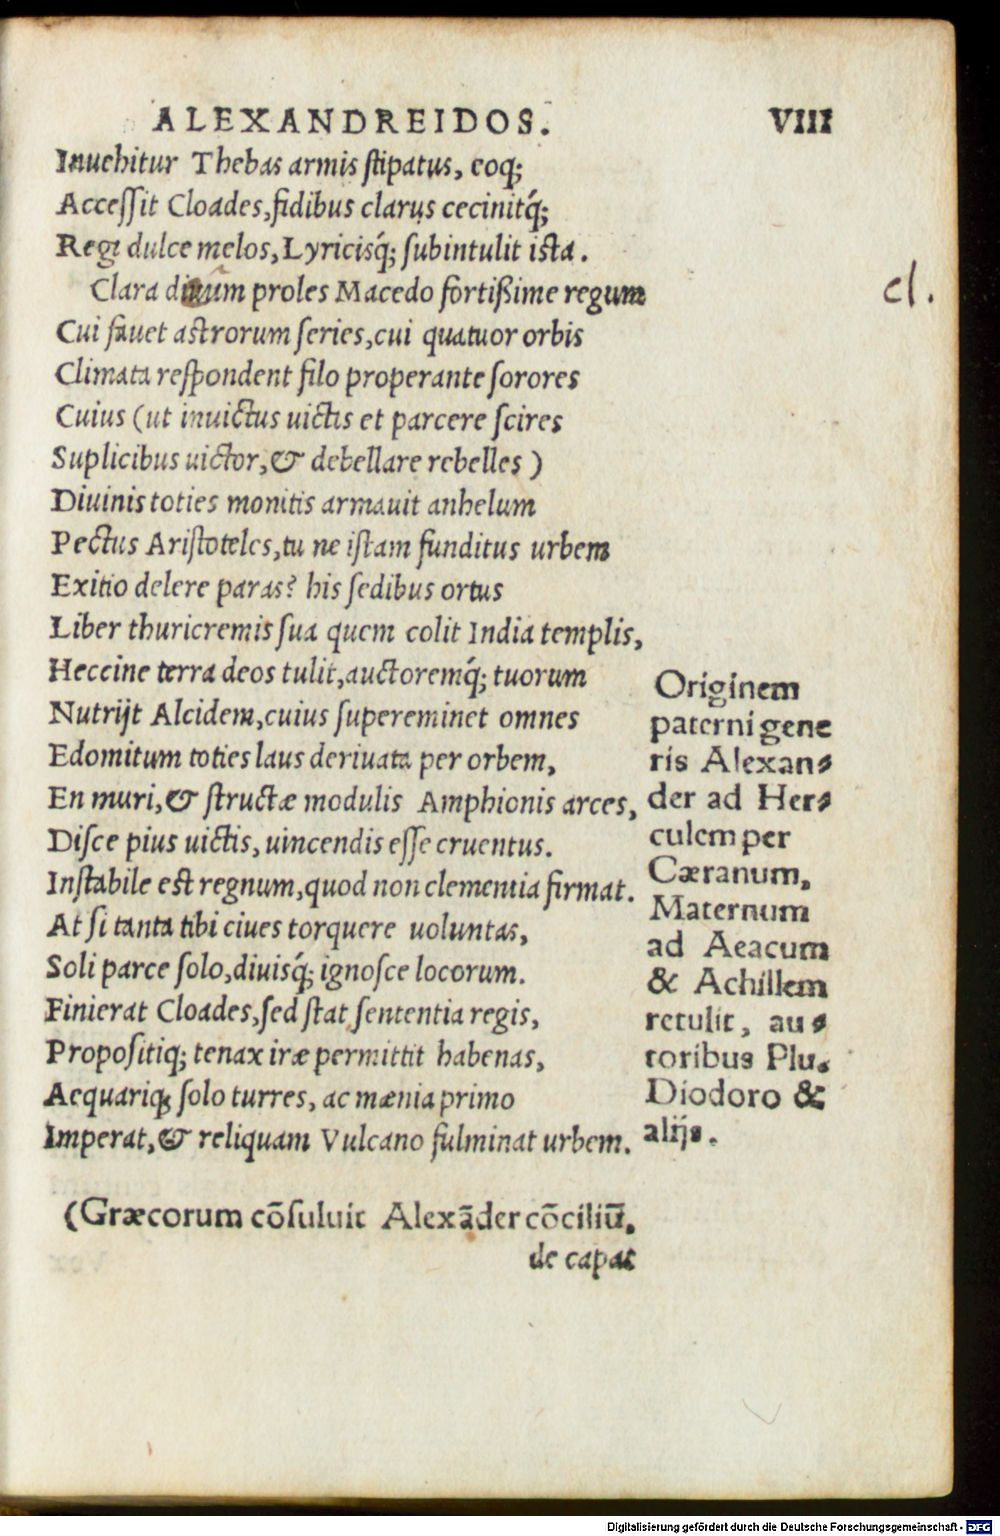 ALEXANDREIDOS. VIII
Inuehitur Thebas armis stipatus, eoq;
Accessit Cloades, fidibus clarus cecinitq́;
Regi dulce melos, Lyricisq́; subintulit ista.
Clara diuûm proles Macedo fortißime regum
cl.
Cui fauet astrorum series, cui quatuor orbis
Climata respondent filo properante sorores
Cuius (ut inuictus uictis et parcere scires
Suplicibus uictor, & debellare rebelles)
Diuinis toties monitis armauit anhelum
Pectus Aristoteles, tu ne istam funditus urbem
Exitio delere paras? his sedibus ortus
Liber thuricremis sua quem colit India templis,
Heccine terra deos tulit, auctoremq́; tuorum
Nutrijt Alcidem, cuius supereminet omnes
Edomitum toties laus deriuata per orbem,
En muri, & structæ modulis Amphionis arces,
Disce pius uictis, uincendis esse cruentus.
Instabile est regnum, quod non clementia firmat.
At si tanta tibi ciues torquere uoluntas,
Soli parce solo, diuisq́; ignosce locorum.
Finierat Cloades, sed stat sententia regis,
Propositiq; tenax iræ permittit habenas,
Aequariq; solo turres, ac mænia primo
Imperat, & reliquam Vulcano fulminat urbem.
Originem
paterni gene
ris Alexan-
der ad Her-
culem per
Cæranum,
Maternum
ad Aeacum
& Achillem
retulit, au-
toribus Plu.
Diodoro &
alijs.
(Græcorum cõsuluit Alexãder cõciliũ.
de capat
Digitalisierung gefördert durch die Deutsche Forschungsgemeinschaft - DFG